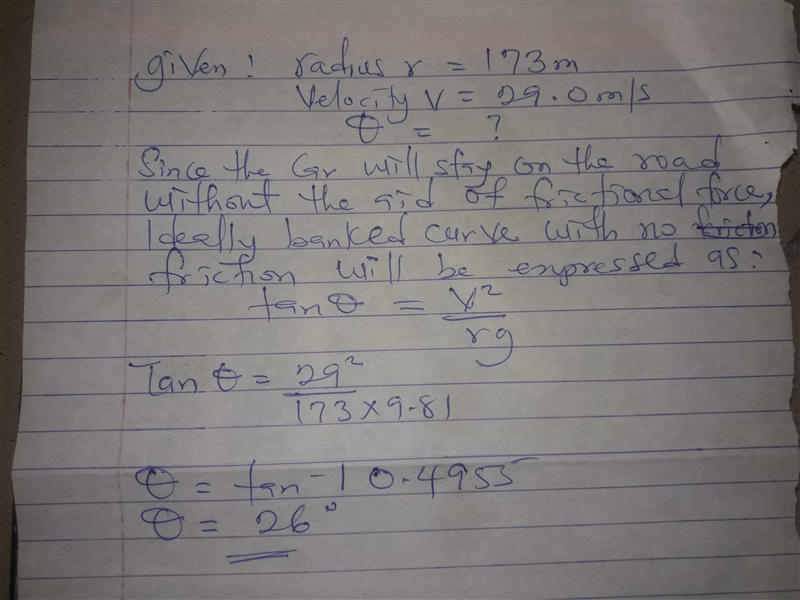 given: radius r = 173m
Velocity v = 29.0m/s
θ = ?
Since the Car will stay on the road
without the aid of frictional force,
Ideally banked curve with no friction
friction will be expressed as:
tanθ = v²
rg
Tan θ = 29²
173×9.81
θ = tan-1 0.4955
θ = 26°